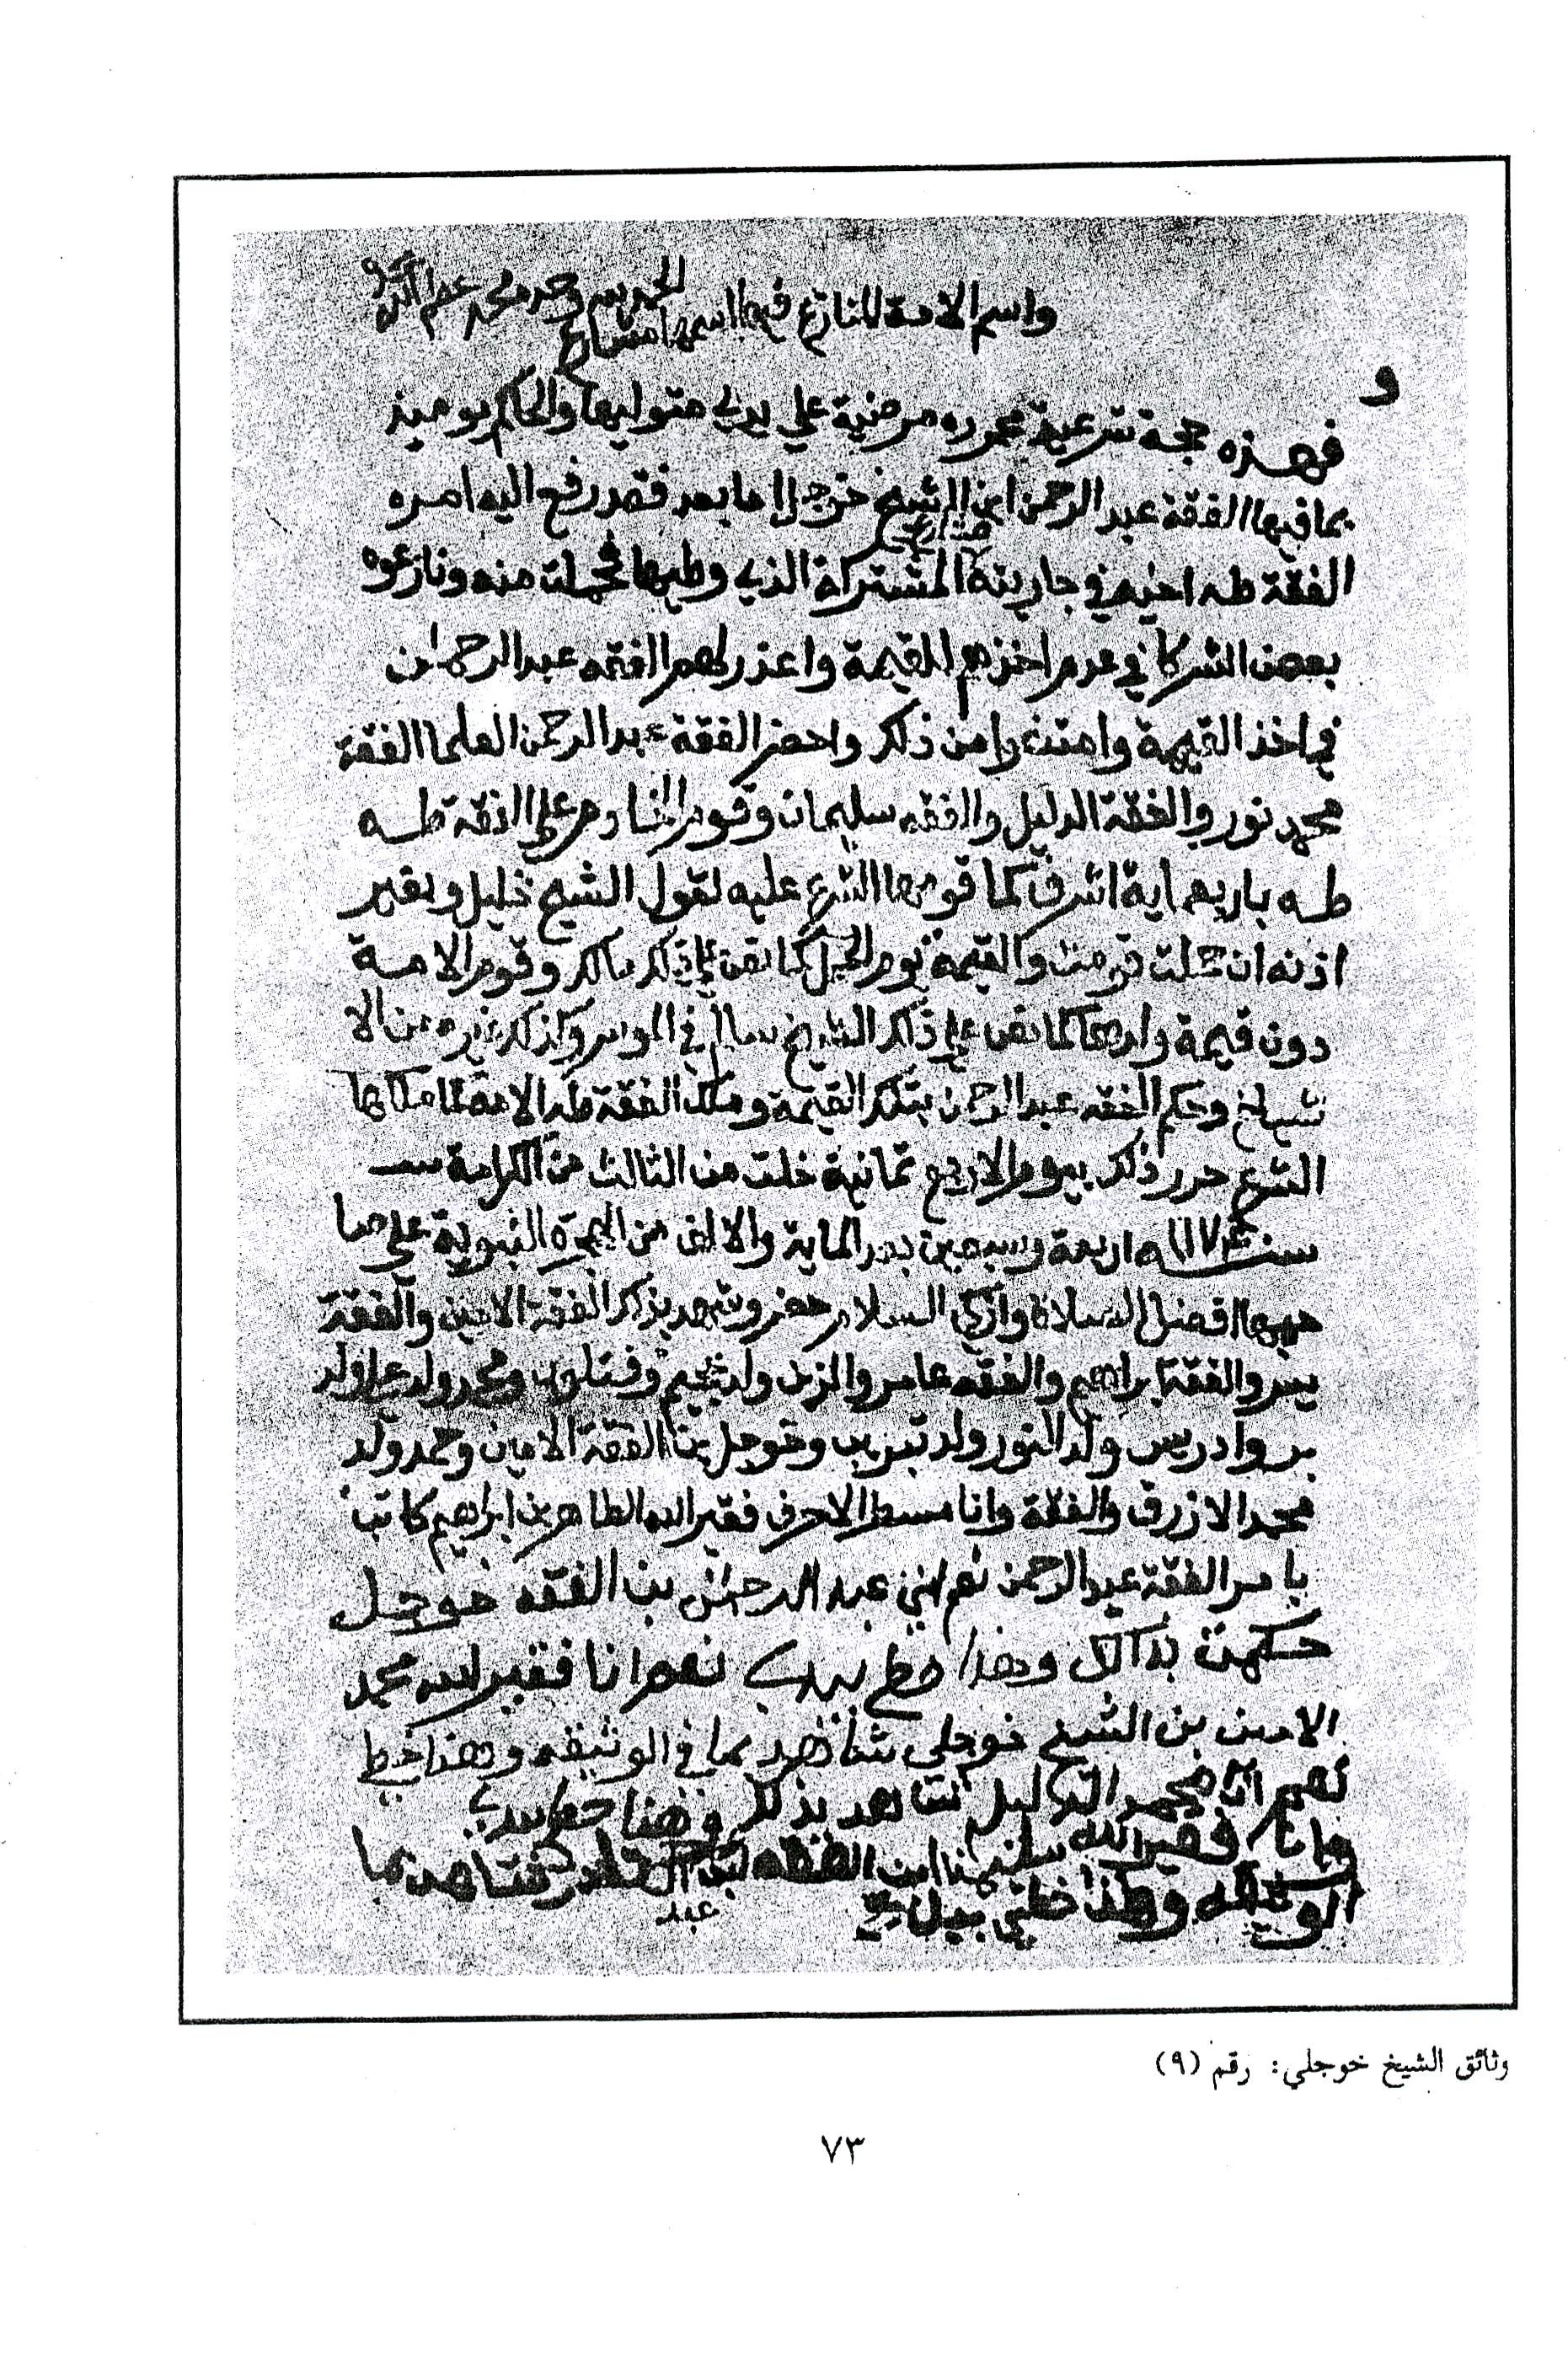 الحمد لله وحده
واسم الامة المنازع فيها اسمها مشارع
و
فهذه حجة شرعية محررة مرضية علي يدي متوليها والحاكم يوميذ
بما فيها الفقة عبد الرحمن ابن الشيخ خوجلي اما بعد فقد رفع اليه امره
مشارع
الفقة طه اخيه في جاريته المشتركة الذي وطيها فحملت منه ونازعوه
بعض الشركا في عدم اخذهم للقيمة واعذر لهم الفقه عبد الرحمان
في اخذ القيمة وامتنعوا من ذلك واحضر الفقة عبد الرحمن العلما الفقة
محمد نور والفقة الدليل والفقه سليمان وقوم الخادم علي الفقة طه
طه باربعماية اشرفي كما قومها الشرع عليه لقول الشيخ خليل وبغير
اذنه ان حملت قومت والقيمة يوم الحمل كما نص علي ذلك مالك وقوم الامة
دون قيمة ولدها كما نص علي ذلك الشيخ سالم في الموسر وكذلك غيره من الا
شياخ وحكم الفقه عبد الرحمن بتلك القيمة وملك الفقة طه الامة لما ملكها
الشرع حرر ذلك بيوم الاربع ثمانية خلت من الثالث من الكرامة
سنة ١١٧٤ اربعة وسبعين بعد الماية والالف من الهجرة النبوية علي صا
حبها افضل الصلاة وازكي السلام حضر وشهد بذلك الفقة الامين والفقة
والفقة ابراهيم والفقه عامر والزين ولد ومحمد ولد علي ولد
بر وادريس ولد النور ولد وخوجلي بن الفقة الامين وحمد ولد
محمد الازرق والفلاة وانا مسطر الاحرف فقير الله الطاهر بن ابراهيم كاتب
بامر الفقة عبد الرحمن نعم انني عبد الرحمن بن الفقه خوجلي
حكمت بذالك وهذا خط يدي نعم انا فقير الله محمد
الامين بن الشيخ خوجلي شاهد بما في الوثيقه وهذا خط
نعم انا محمد الدليل شاهد بذلك وهذا خط يدي
وانا فقير الله سليمان ابن الفقه عبد شاهد بما
الوثيقه وهذا خطي بيدي
عبد
وثائق الشيخ خوجلي: رقم (٩)
٧٣